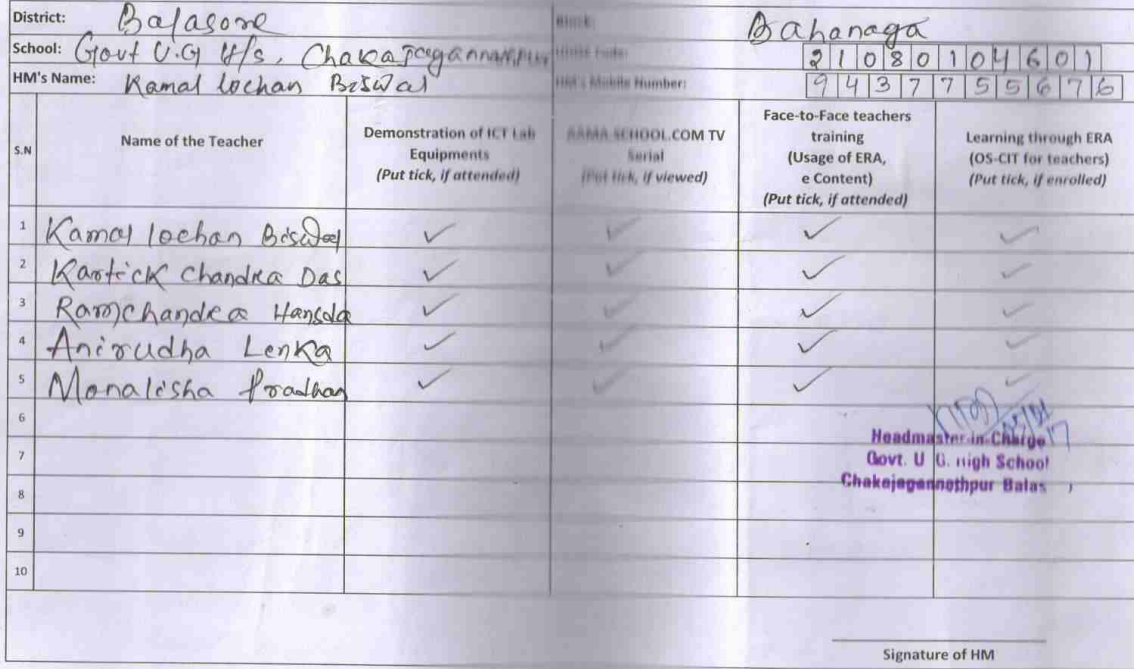 District: Balasore Block: Bahanaga
School: Govt U.G H/s, Chakajagannathpur 21080104601
HM's Name: Kamal lochan Biswal HM's Mobile Number: 9437755676
S.N Name of the Teacher Demonstration of ICT Lab Equipments (Put tick, if attended) RAMA SCHOOL.COM TV Serial (Put tick, if viewed) Face-to-Face teachers training (Usage of ERA, e Content) (Put tick, if attended) Learning through ERA (OS-CIT for teachers) (Put tick, if enrolled)
1 Kamal lochan Biswal ✓ ✓ ✓ ✓
2 Kartick Chandra Das ✓ ✓ ✓ ✓
3 Ramchandra Hansda ✓ ✓ ✓ ✓
4 Anirudha Lenka ✓ ✓ ✓ ✓
5 Monalisha Pradhan ✓ ✓ ✓ ✓
6
7
8
9
10
Headmaster-in-Charge
Govt. U G. High School
Chakajagannathpur Balas
Signature of HM